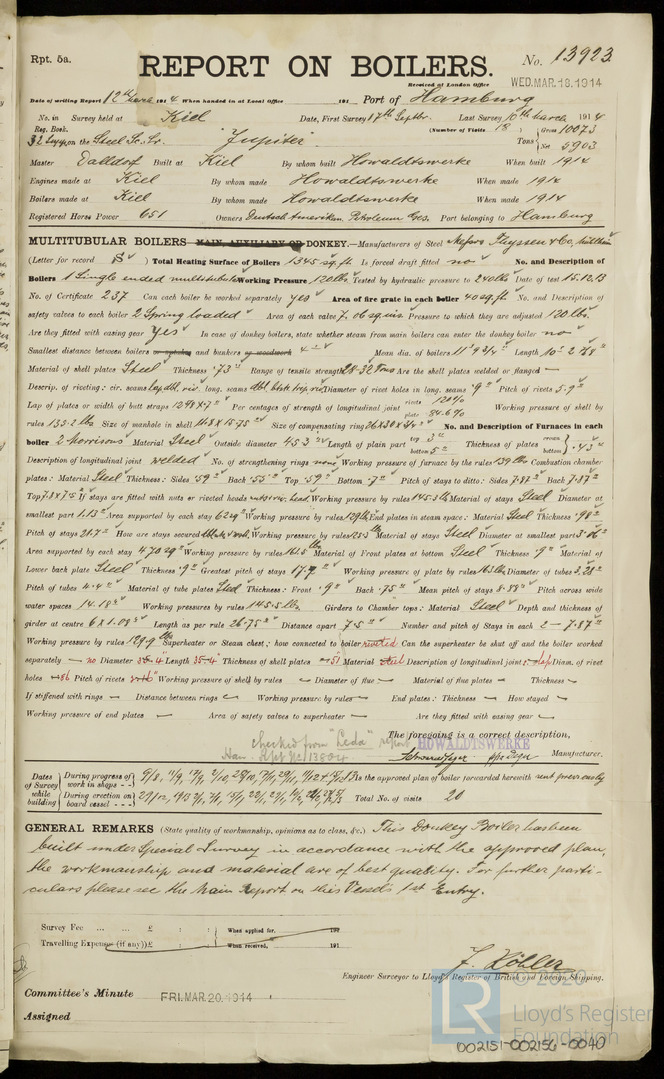 Rpt. 5a.
REPORT ON BOILERS.
No. 13923
Received at London Office WED. MAR. 18. 1914
Date of writing Report 12th March 1914 When handed in at Local Office 191 Port of Hamburg
No. in Survey held at Kiel Date, First Survey 17th Septbr. Last Survey 10th March 1914
Reg. Book. (Number of Visits 18) Gross 10073
on the Steel Sc. Sr. "Jupiter" Tons Net 5903
Master Dalldorf Built at Kiel By whom built Howaldtswerke When built 1914
Engines made at Kiel By whom made Howaldtswerke When made 1914
Boilers made at Kiel By whom made Howaldtswerke When made 1914
Registered Horse Power 651 Owners Deutsch Amerikan. Petroleum Ges. Port belonging to Hamburg
MULTITUBULAR BOILERS MAIN, AUXILIARY OR DONKEY.—Manufacturers of Steel Messrs Thyssen & Co,
(Letter for record S) Total Heating Surface of Boilers 1345 sq. ft Is forced draft fitted no No. and Description of
Boilers 1 Single ended multitubular Working Pressure 120 lbs Tested by hydraulic pressure to 240 lbs Date of test 15.12.13
No. of Certificate 237 Can each boiler be worked separately yes Area of fire grate in each boiler 40 sq. ft No. and Description of
safety valves to each boiler 2 Spring loaded Area of each valve 7.06 sq ins Pressure to which they are adjusted 120 lbs.
Are they fitted with easing gear yes In case of donkey boilers, state whether steam from main boilers can enter the donkey boiler no
Smallest distance between boilers or uptakes and bunkers or woodwork Mean dia. of boilers 11' 9 3/4" Length 10' 2
Material of shell plates Steel Thickness .73" Range of tensile strength 28-32 Tons Are the shell plates welded or flanged —
Descrip. of riveting: cir. seams lap dbl. riv. long. seams dbl. butt. trip. riv. Diameter of rivet holes in long. seams .9" Pitch of rivets 5.9"
Lap of plates or width of butt straps Per centages of strength of longitudinal joint rivets 120% plate 84.6% Working pressure of shell by
rules 133.2 lbs Size of manhole in shell 11.8 x 15.75" Size of compensating ring No. and Description of Furnaces in each
boiler 2 Morrisons Material Steel Outside diameter 45.3" Length of plain part top 3" bottom 5" Thickness of plates crown bottom .43"
Description of longitudinal joint welded No. of strengthening rings none Working pressure of furnace by the rules 139 lbs Combustion chamber
plates: Material Steel Thickness: Sides .59" Back .55" Top .59" Bottom .7" Pitch of stays to ditto: Sides 7.87" Back 7.87"
Top 7.8 x 7.5 If stays are fitted with nuts or riveted heads Working pressure by rules 145.3 lbs Material of stays Steel Diameter at
smallest part 1.13" Area supported by each stay 62 sq" Working pressure by rules 129 lbs End plates in steam space: Material Steel Thickness .98"
Pitch of stays How are stays secured Working pressure by rules Material of stays Steel Diameter at smallest part
Area supported by each stay Working pressure by rules 161.5 lbs Material of Front plates at bottom Steel Thickness .9" Material of
Lower back plate Steel Thickness .9" Greatest pitch of stays Working pressure of plate by rules 163 lbs Diameter of tubes 3.25"
Pitch of tubes 4.4" Material of tube plates Steel Thickness: Front .9" Back .75" Mean pitch of stays 8.88" Pitch across wide
water spaces 14.18" Working pressures by rules 145.5 lbs Girders to Chamber tops: Material Steel Depth and thickness of
girder at centre 6 x 1.08" Length as per rule 26.75" Distance apart 7.5" Number and pitch of Stays in each 2 — 7.87"
Working pressure by rules 129.9 lbs Superheater or Steam chest; how connected to boiler riveted Can the superheater be shut off and the boiler worked
separately — no Diameter 35.4 Length 35.4" Thickness of shell plates .51 Material steel Description of longitudinal joint lap Diam. of rivet
holes .86 Pitch of rivets Working pressure of shell by rules — Diameter of flue — Material of flue plates — Thickness —
If stiffened with rings — Distance between rings — Working pressure by rules — End plates: Thickness — How stayed —
Working pressure of end plates — Area of safety valves to superheater — Are they fitted with easing gear —
The foregoing is a correct description,
checked from "Leda" report HOWALDTSWERKE
Ham. Rpt No 13804 Manufacturer.
Dates of Survey while building
During progress of work in shops - - Is the approved plan of boiler forwarded herewith sent previously
During erection on board vessel - - - Total No. of visits 20
GENERAL REMARKS (State quality of workmanship, opinions as to class, &c.) This Donkey Boiler has been
built under Special Survey in accordance with the approved plan,
the workmanship and material are of best quality. For further parti-
culars please see the Main Report on this Vessel's 1st Entry.
Survey Fee ... ... £ : : When applied for, 191
Travelling Expenses (if any) £ : : When received, 191
F. Köhler
Engineer Surveyor to Lloyd's Register of British and Foreign Shipping.
Committee's Minute FRI. MAR. 20. 1914
Assigned
© 2020
LR Lloyd's Register
Foundation
002151-002156-0040